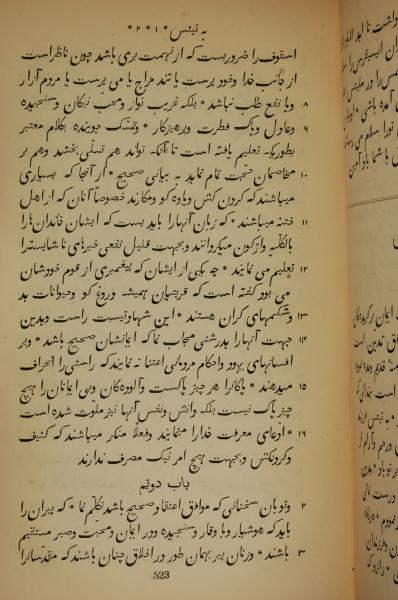 به تیتس * ۱ * ۲ *
اسقوف را ضروریست که از تهمت بری باشد چون ناظر است
از جانب خدا و خود پرست یا تند مزاج یا می پرست یا مردم آزار
۸ ویا نفع طلب نباشد * بلکه غریب نواز ومحب نیکان وسنجیده
۹ وعادل وپاک فطرت وپرهیزکار * وتمسک جوینده بکلام معتبر
بطوریکه تعلیم یافته است تا آنکه تواند هم تسلی بخشد وهم بر
۱۰ مخاصمان حجت تمام نماید به بیانی صحیح * از آنجا که بسیاری
میباشند که گردن کش ویاوه کو ومکارند خصوصاً آنان که از اهل
۱۱ ختنه میباشند * که زبان آنها را باید بست که ایشان خاندان ها را
بالکلیه واژکون میکردانند وبجهت قلیل نفعی خبرهای ناشایسته را
۱۲ تعلیم می نمایند * چه یکی از ایشان که پیغمبری از قوم خودشان
می بود گفته است که قریتیان همیشه دروغ کو وحیوانات بد
۱۳ وشکمهای کران هستند * این شهادتیست راست وبدین
۱۴ جهت آنها را بدرشتی مجاب نما که ایمانشان صحیح باشد * وبر
افسانهای یهود واحکام مردمانی اعتنا نه نمایند که راستی را انحراف
۱۵ میدهند * پاکانرا هر چیز پاکست وآلوده کان وبی ایمانان را هیچ
چیز پاک نیست بلکه دانش ونفس آنها نیز ملوث شده است
۱۶ * ادعای معرفت خدا را مینمایند وفعلاً منکر میباشند که کثیف
وکردنکش وبجهت هیچ امر نیک مصرف ندارند
باب دویّم
۲ وتو بآن سخنانی که موافق اعتقاد صحیح باشد تکلم نما * که پیران را
باید که هوشیار وبا وقار وسنجیده ودر ایمان ومحبت وصبر مستقیم
۳ باشند * وزنان پیر بهمان طور در اخلاق چنان باشند که مقدسانرا
523